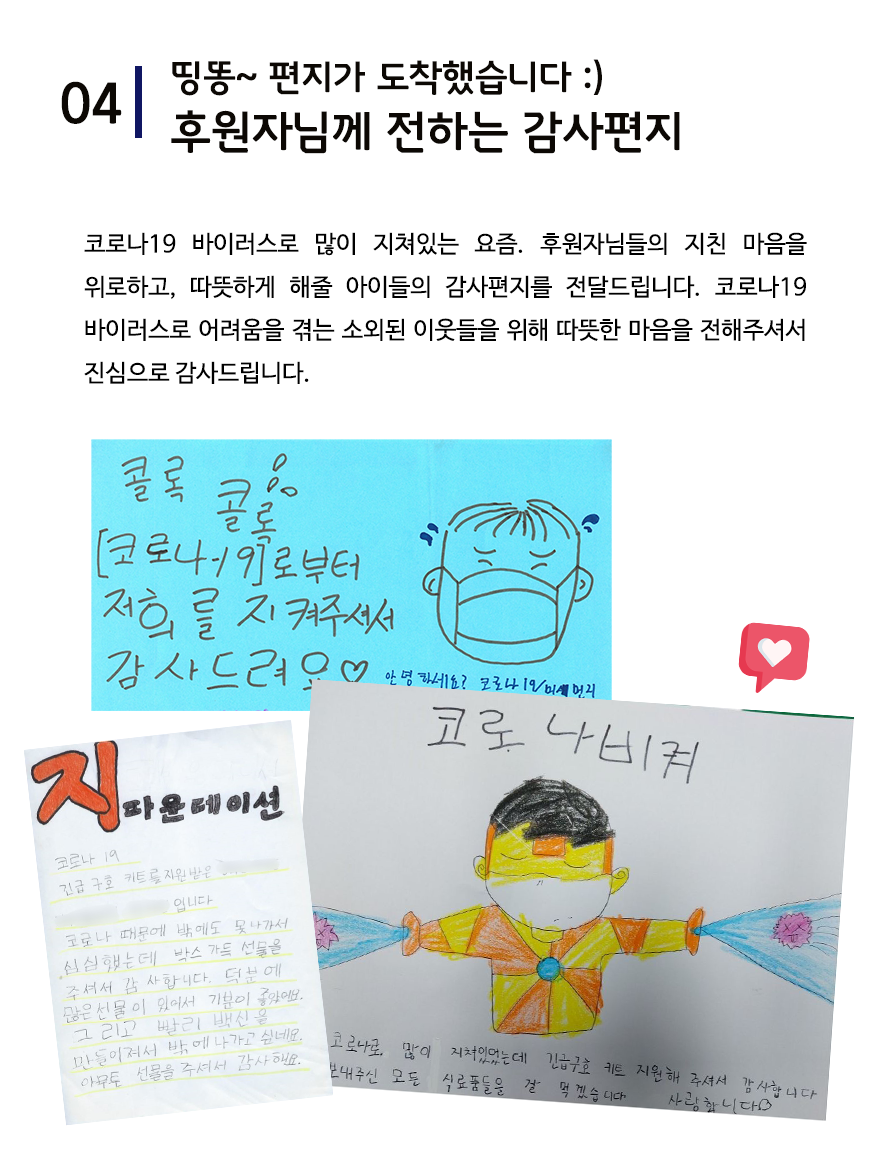 04
띵똥~ 편지가 도착했습니다 :)
후원자님께 전하는 감사편지
코로나19 바이러스로 많이 지쳐있는 요즘. 후원자님들의 지친 마음을
위로하고, 따뜻하게 해줄 아이들의 감사편지를 전달드립니다. 코로나19
바이러스로 어려움을 겪는 소외된 이웃들을 위해 따뜻한 마음을 전해주셔서
진심으로 감사드립니다.
콜록 콜록
[코로나-19]로부터
저희를 지켜주셔서
감사드려요♡
안녕하세요? 코로나19/미세먼지
지파운데이션
코로나 19
긴급 구호 키트를 지원받은
입니다
코로나 때문에 밖에도 못나가서
심심했는데 박스 가득 선물을
주셔서 감사합니다. 덕분에
많은선물이 있어서 기분이 좋았어요.
그리고 빨리 백신을
만들어져서 밖에 나가고 싶네요.
아무튼 선물을 주셔서 감사해요.
코로나비켜
코로나로, 많이 지쳐있었는데 긴급구호 키트 지원해 주셔서 감사합니다
보내주신 모든 식료품들을 잘 먹겠습니다 사랑합니다♡